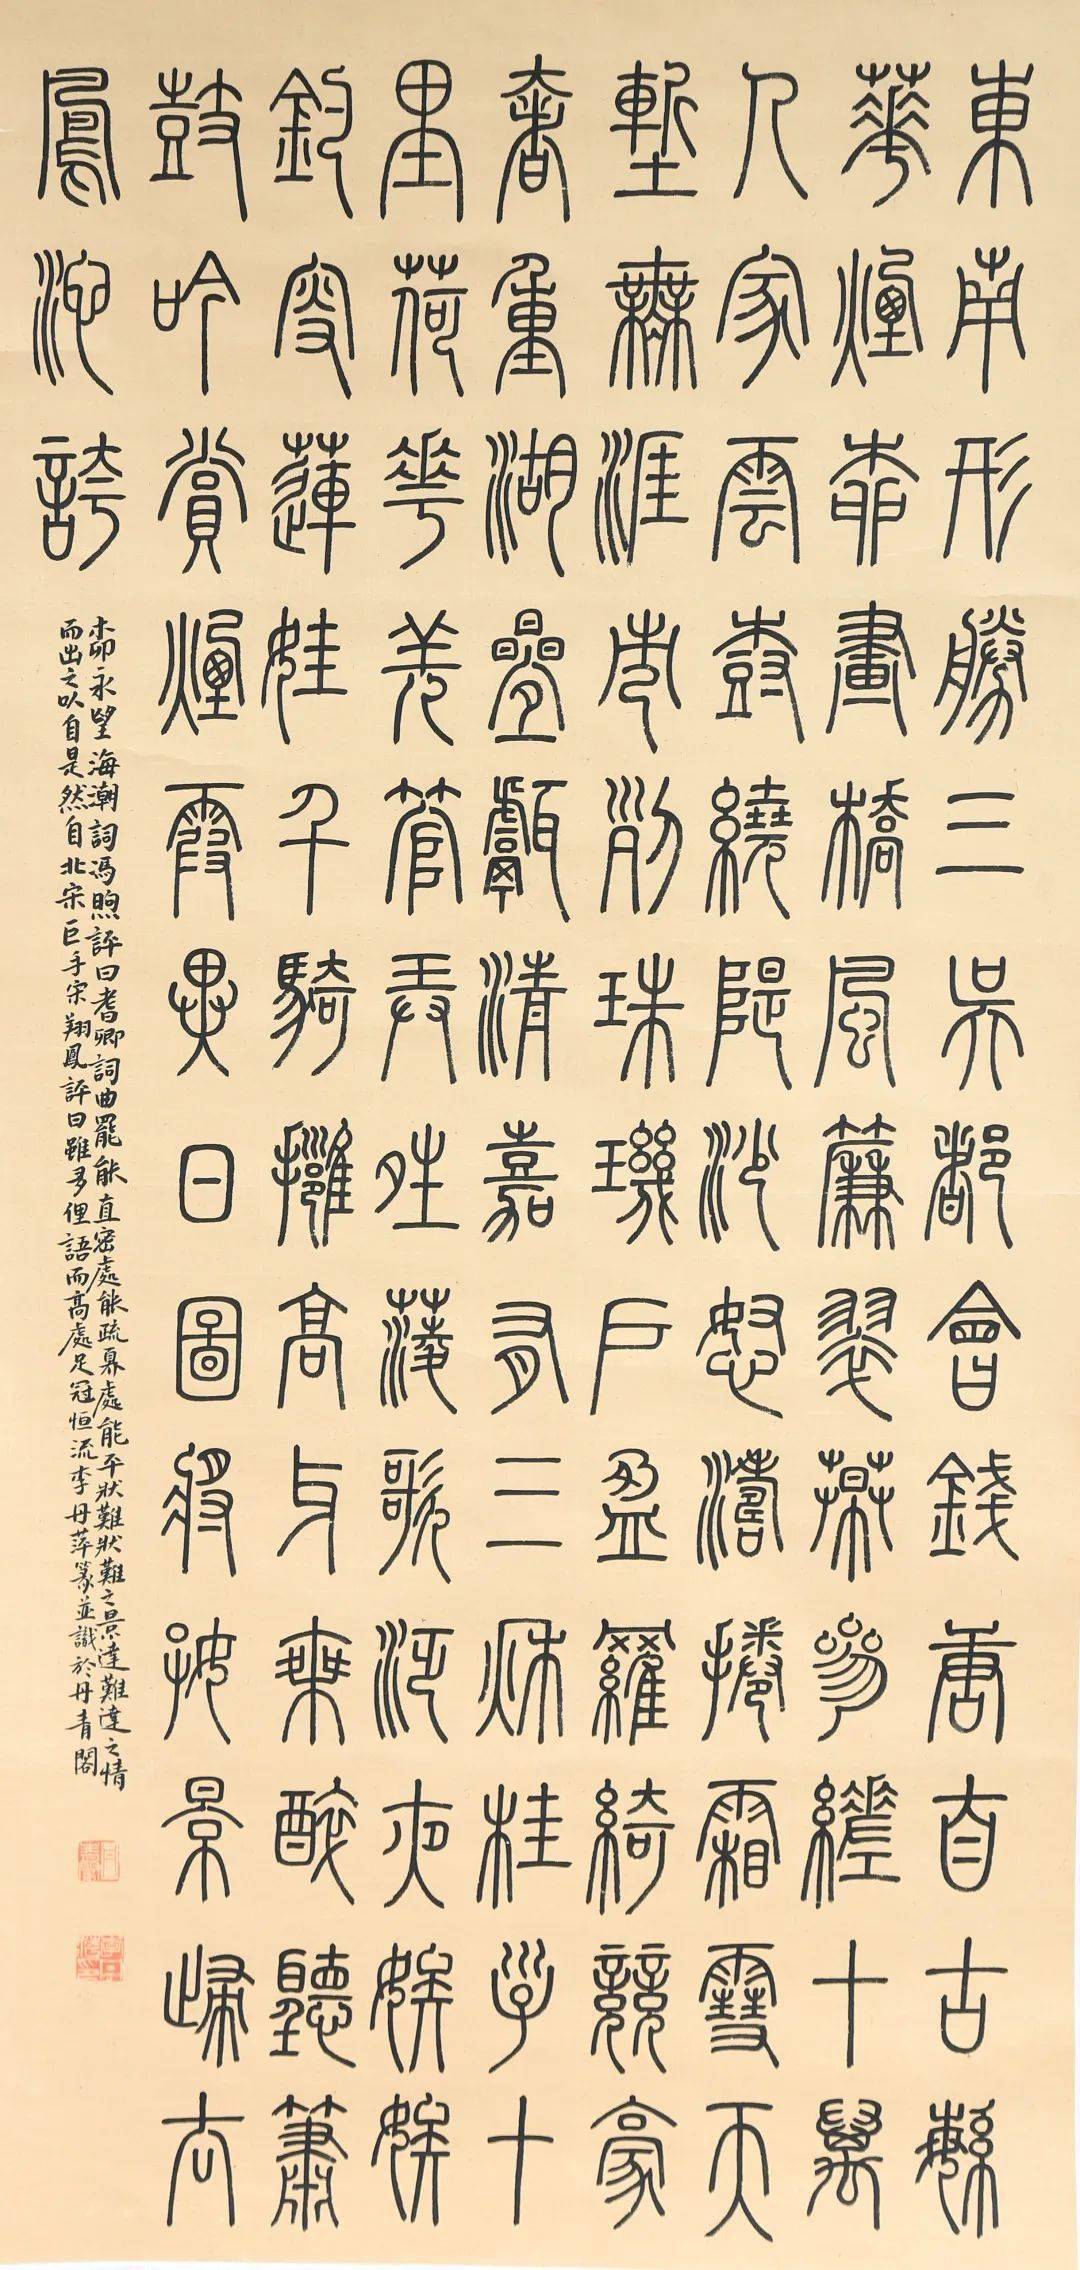 東南形勝三吳都會錢唐自古繁
華煙柳畫橋風簾翠幕參縒十萬
人家雲樹繞隄沙怒濤捲霜雪天
塹無涯市列珠璣戶盈羅綺競豪
奢重湖疊巘清嘉有三秋桂子十
里荷花羌管弄晴菱歌泛夜娭娭
釣叟蓮娃千騎擁高牙乘醉聽簫
鼓吟賞煙霞異日圖將好景歸去
鳳池誇
柳永望海潮詞馮煦評曰耆卿詞曲罷能直密處能疏奡處能平狀難狀難之景達難達之情
而出之以自是然自北宋巨手宋翔鳳評曰雖多俚語而高處足冠恒流李丹萍篆並識於丹青閣